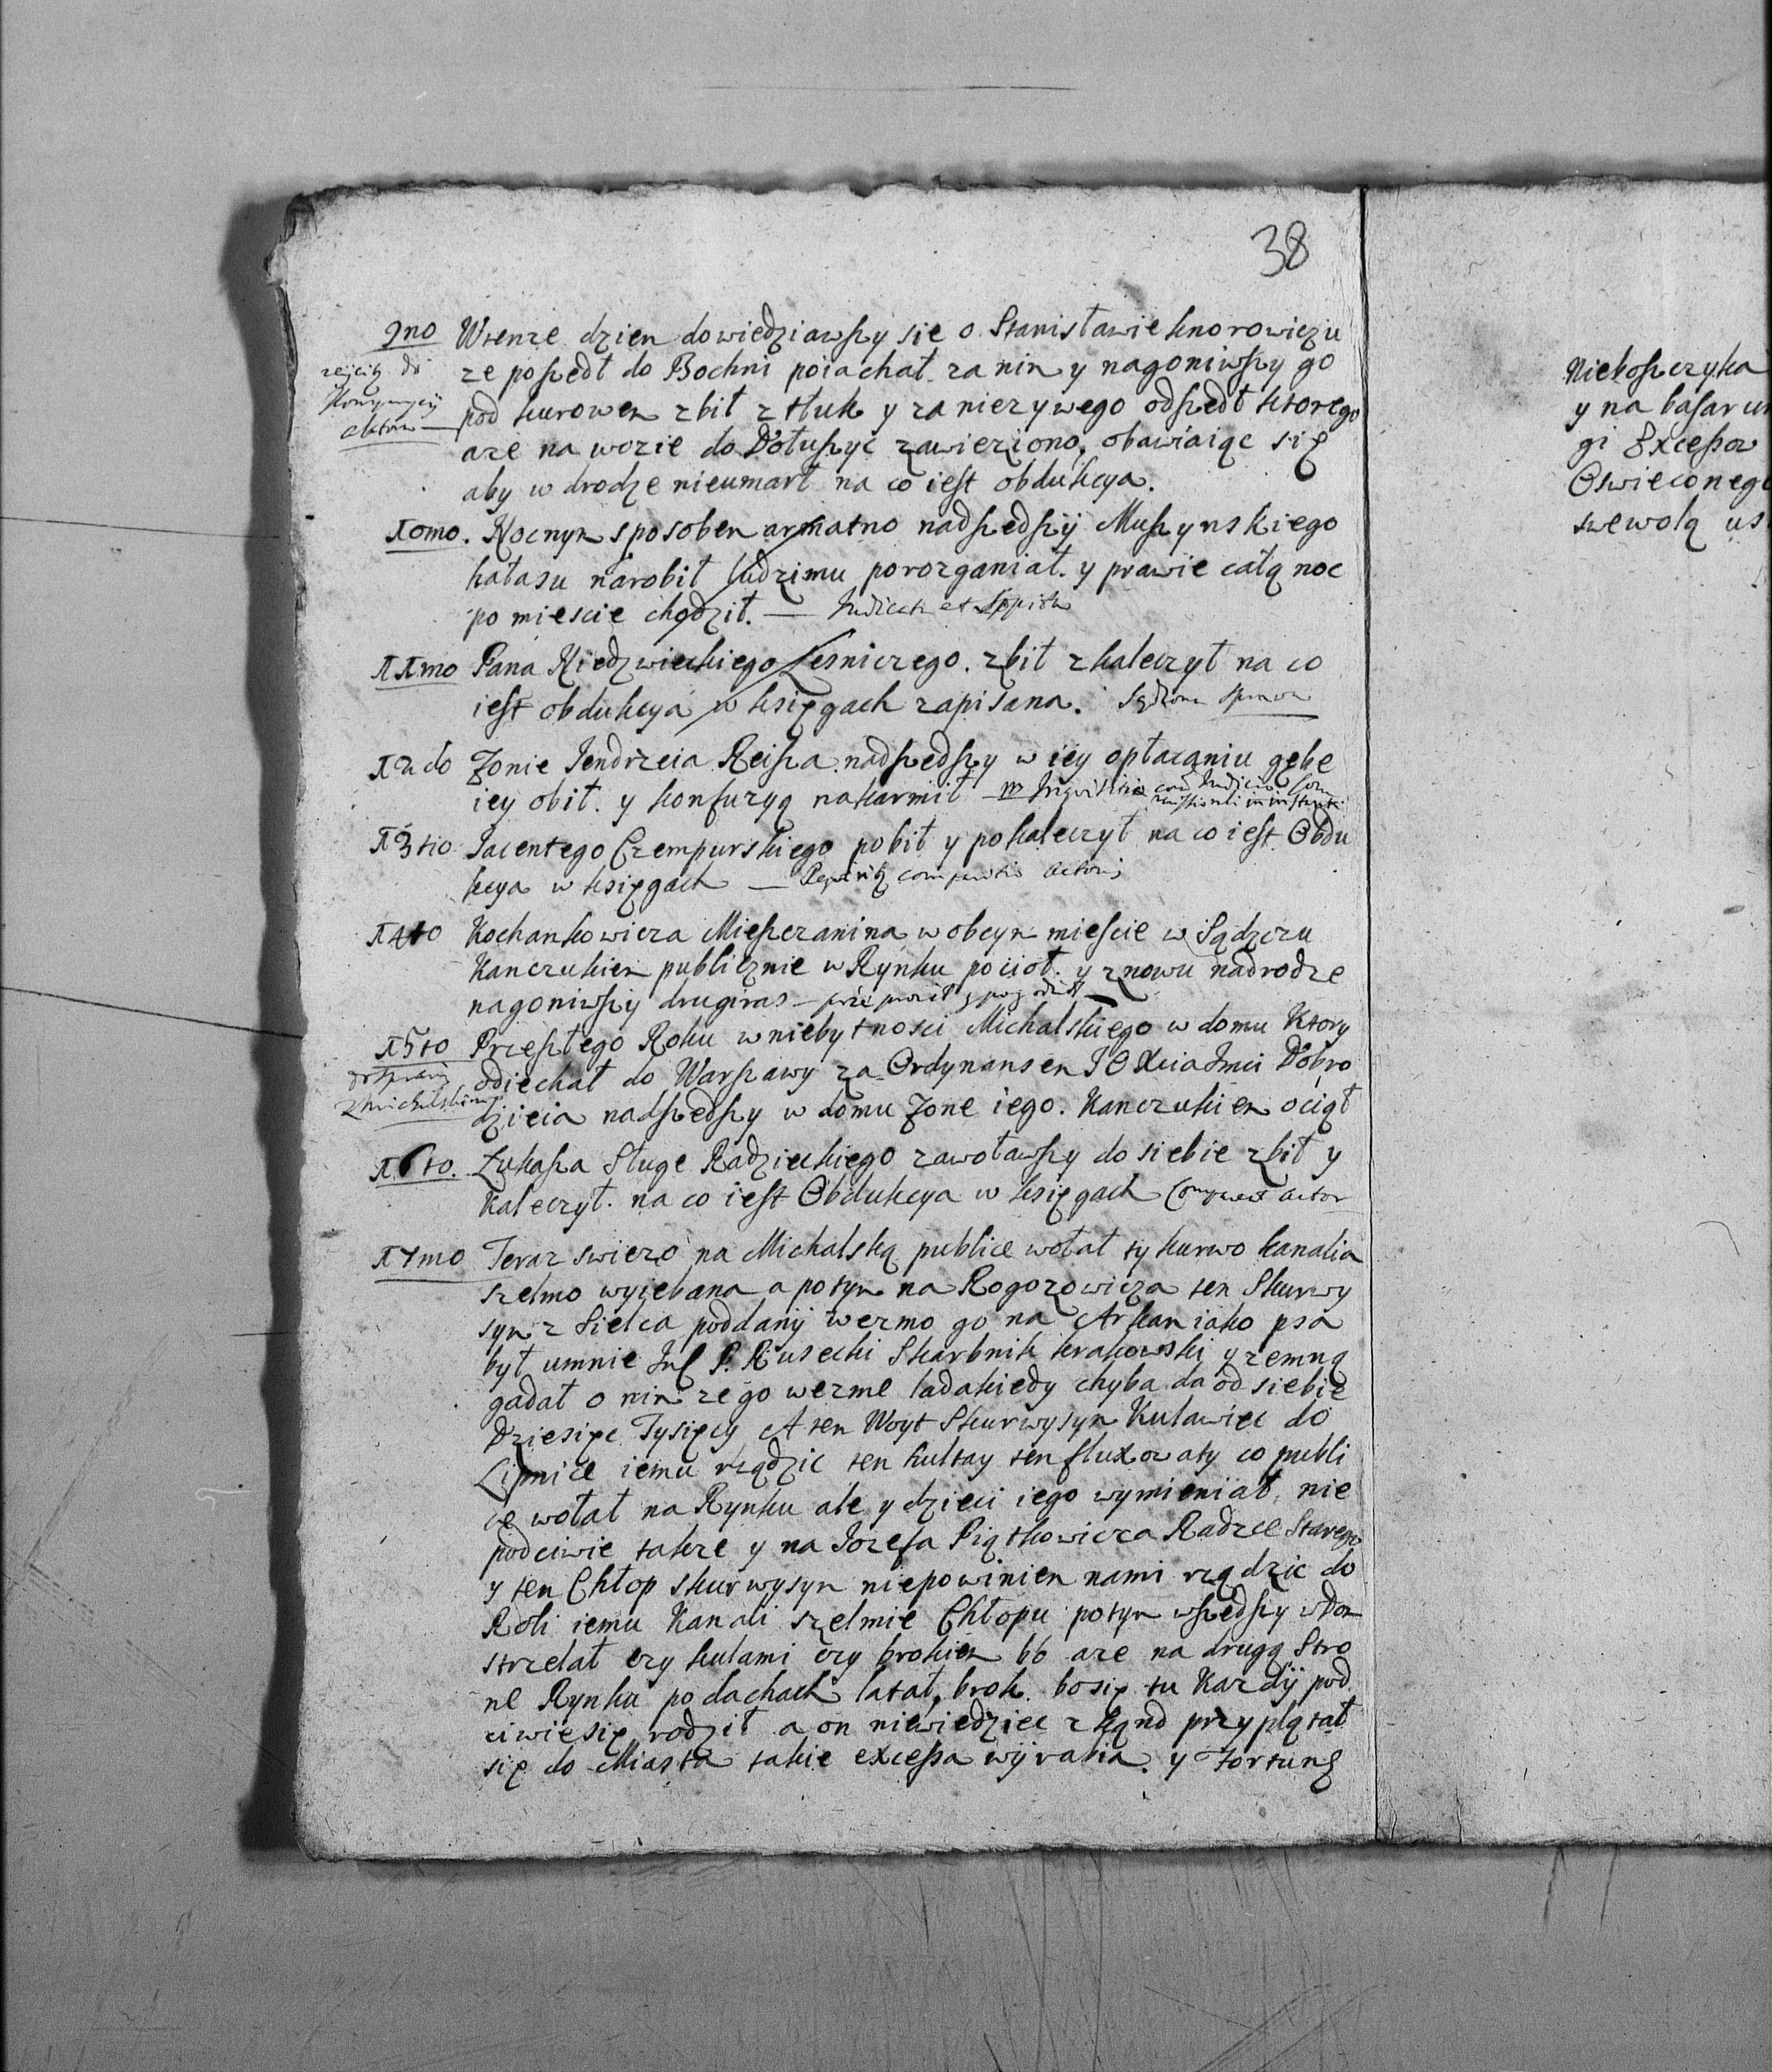 38
9no Wtenze dzien dowiedziawszy sie o Stanisławie Knorowiczu
ze poszedł do Bochni poiachał za nim y nagoniwszy go
pod kurowem zbił ztłuk y za niezywego odszedł ktorego
aze na wozie do Dołuszyc zawieziono, obawiaiąc się
aby w drodze nieumarł na co iest obdukcya.
10mo. Nocnym sposobem armatno nadszedszy Muszynskiego
hałasu narobił ludzi mu porozganiał. y prawie całą noc
po miescie chodził.
11mo Pana Niedzwieckiego Lesniczego. zbił zkaleczył na co
iest obdukcya w księgach zapisana. Sądzona sprawa
12do Zonie Jendrzeia Reisza nadszedszy w iey opłazaniu gębe
iey obił. y konfuzyą nakarmił
13tio Jacentego Czempurskiego pobił y pokaleczył na co iest Obdu
kcya w księgach
14to Kochankowicza Mieszczanina w obcym miescie w Sądzczu
Kanczukiem publicznie w Rynku pocioł. y znowu nadrodze
nagoniwszy drugiras – przeprosił y pogodził
15to Przeszłego Roku w niebytnosci Michalskiego w domu Ktory
z Michalskim
odiechał do Warszawy za Ordynansem J O Xcia Jmci Dobro
dzieia nadszedszy w domu Zone iego. Kanczukiem ociął
16to. Łukasza Sługe Radzieckiego zawoławszy do siebie zbił y
Kaleczył. na co iest Obdukcya w księgach
17mo Teraz swiezo na Michalską publice wołał ty kurwo kanalia
szelmo wyiebana a potym na Rogozowicza ten Skurwy
syn z Sielca poddany wezmo go na Arkan iako psa
był umnie Jmć P. Rusecki Skarbnik krakowski y zemną
gadał o nim ze go wezme ladakiedy chyba da od siebie
Dziesięc Tysięcy A ten Woyt Skurwysyn Kulawiec do
Lipnice iemu rządzic ten hultay ten fluxowaty co publi
ce wołał na Rynku ale y dzieci iego wymieniał, nie
podciwie takze y na Jozefa Piątkowicza Radzce Starego
y ten Chłop skurwysyn niepowinien nami rządzic do
Roli iemu Kanali szelmie Chłopu potym wszedszy w Dom
strzelał czy kulami czy brokiem bo aze na drugą Stro
ne Rynku po dachach latał, brok bosię tu Kazdy pod
ciwie się rodził a on niewiedziec zkąnd przyplątał
się do Miasta takie excessa wyrabia. y Fortunę
Niekoszczyka
y na basarun
gi Excessow
Oswieconego
swewolą us